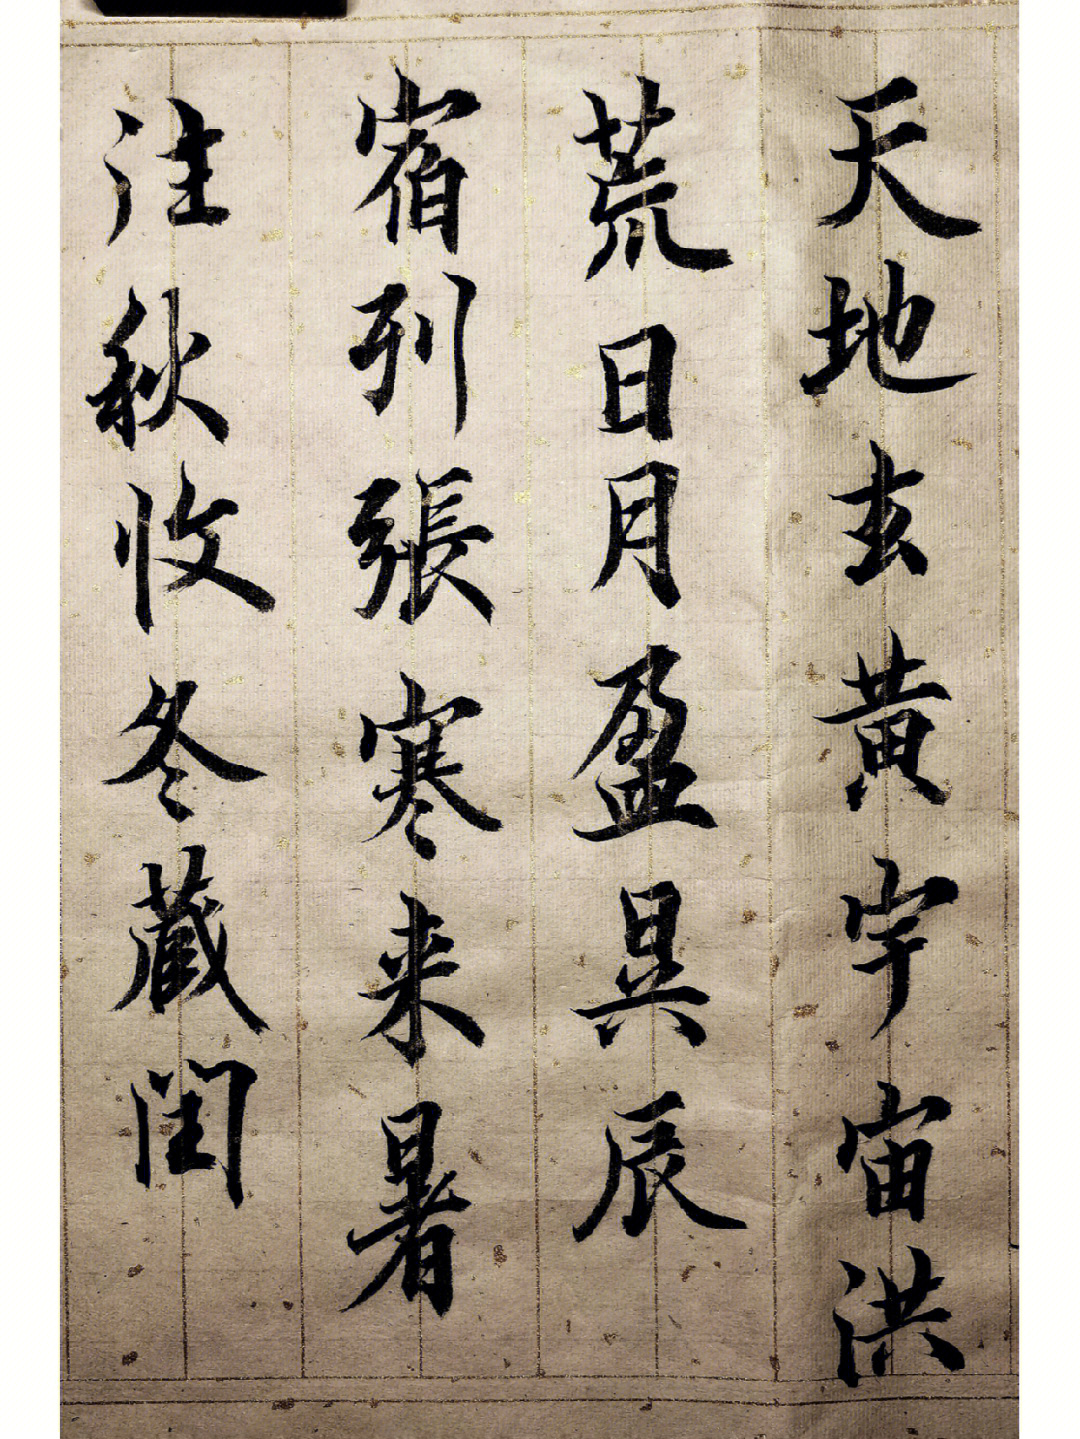 天地玄黄宇宙洪
荒日月盈昃辰
宿列張寒来暑
往秋收冬藏闰